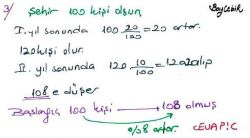 3) Şehir 100 kişi olsun
I. yıl sonunda 100 20/100 = 20 artar.
120 kişi olur.
II. yıl sonunda 120 10/100 = 12 azalıp
108 e düşer
Başlangıç 100 kişi 108 olmuş
%8 artar. CEVAP: C